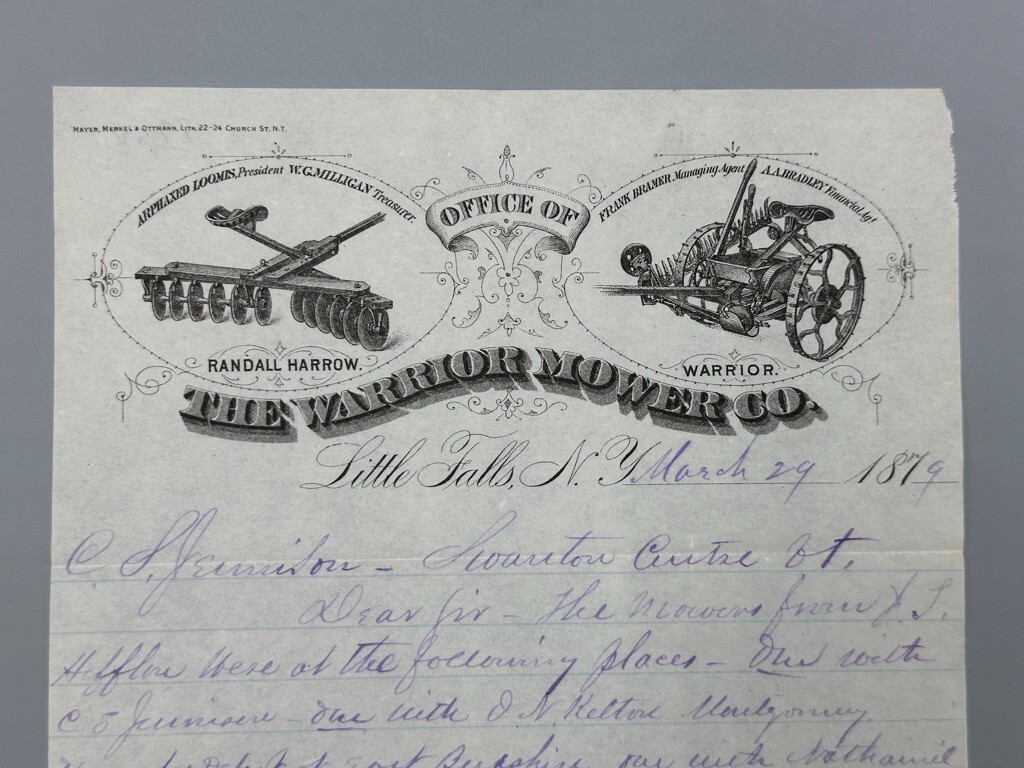 MAYER, MERKEL & OTTMANN, LITH. 22-24 CHURCH ST, N.Y.
ARPHAXED LOOMIS, President W.G. MILLIGAN Treasurer.
OFFICE OF
FRANK BRAMER Managing Agent A.A. BRADLEY Financial Agt
RANDALL HARROW.
WARRIOR.
THE WARRIOR MOWER CO.
Little Falls, N.Y. March 29 1879
C S. Jennison - Swanton Centre Vt.
Dear Sir - The Mowers from
were at the following places - One with
C S Jennison - one with O N Kelton Montgomery
East Berkshire one with Nathaniel